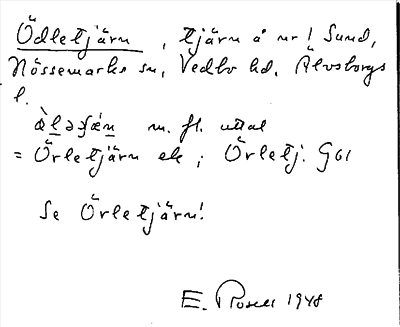 Ödletjärn, tjärn å nr 1 Sund,
Nössemarks sn, Vedbo hd, Älvsborgs
l.
m. fl. uttal
= Örletjärn ek; Örletj. G61
Se Örletjärn!
E. Rosell 1948